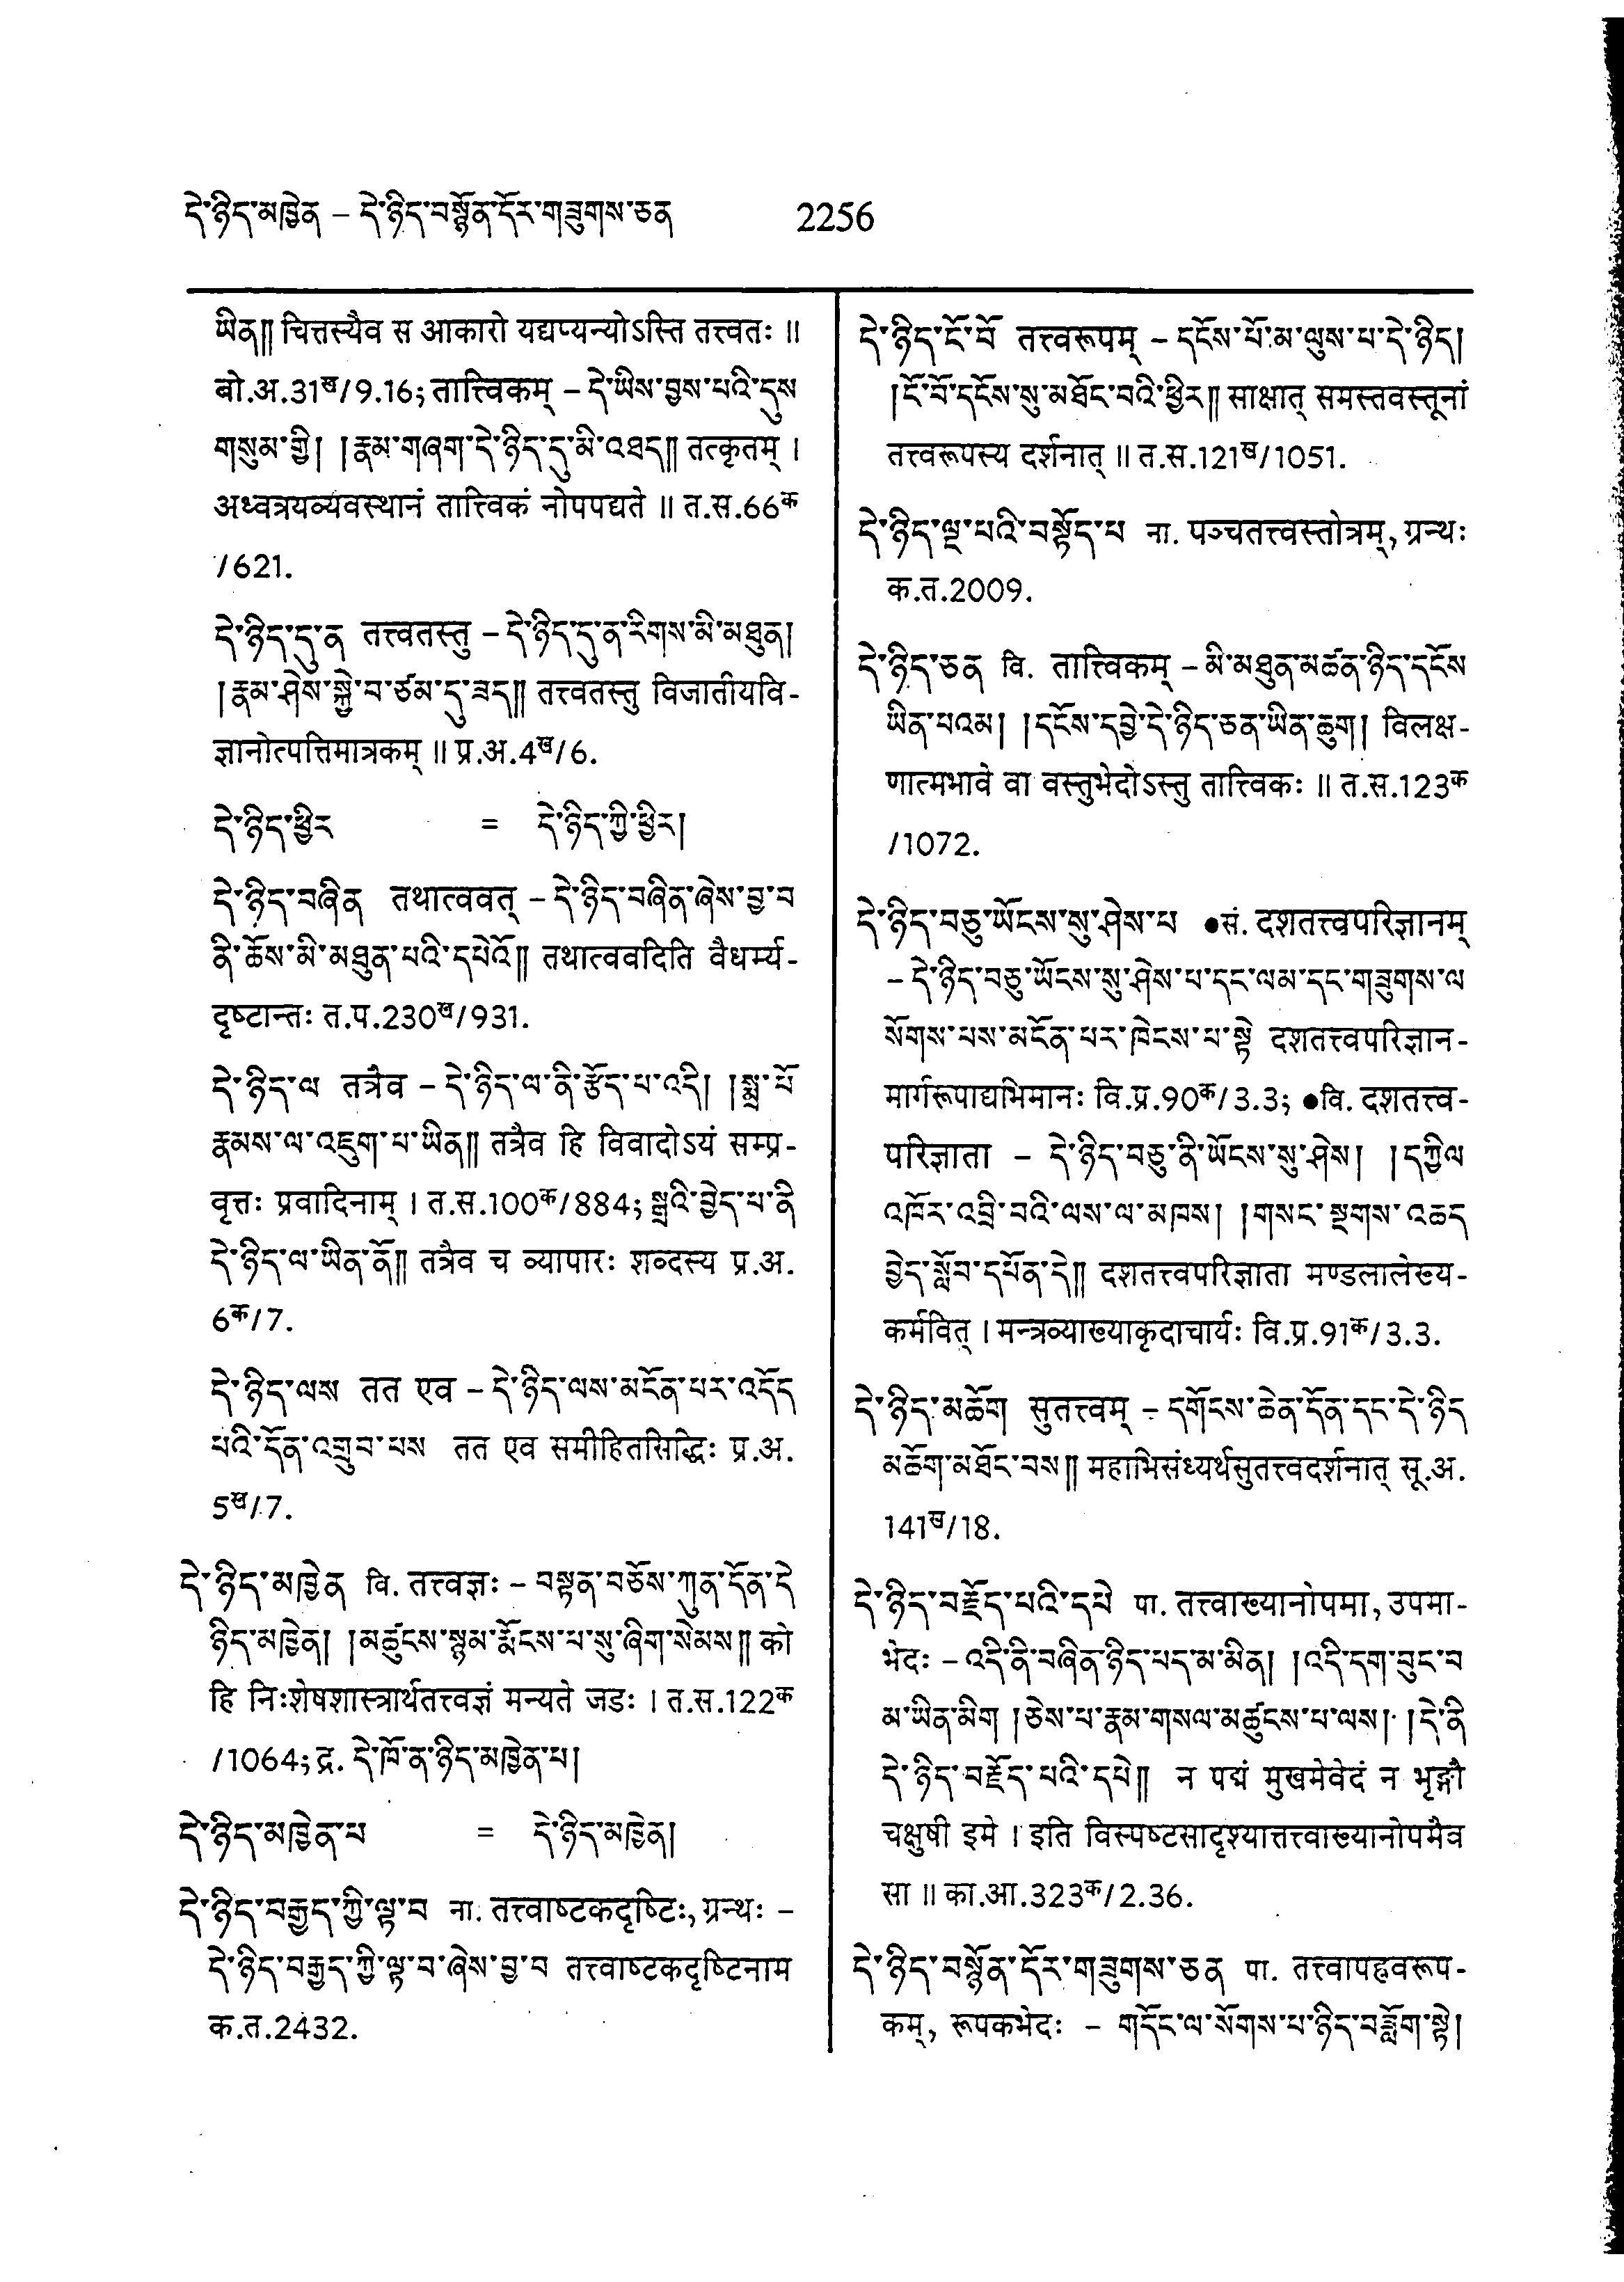 དེ་ཉིད་མཁྱེན – དེ་ཉིད་བསྙོན་དོར་གཟུགས་ཅན 2256
ཡིན༎ चित्तस्यैव स आकारो यद्यप्यन्योऽस्ति तत्त्वतः ॥
बो.अ.31ख/9.16; तात्त्विकम् – དེ་ཡིས་བྱས་པའི་དུས
གསུམ་གྱི། །རྣམ་གཞག་དེ་ཉིད་དུ་མི་འཐད༎ तत्कृतम् ।
अध्वत्रयव्यवस्थानं तात्त्विकं नोपपद्यते ॥ त.स.66क
/621.
དེ་ཉིད་དུ་ན तत्त्वतस्तु – དེ་ཉིད་དུ་ན་རིགས་མི་མཐུན།
།རྣམ་ཤེས་སྐྱེ་བ་ཙམ་དུ་ཟད༎ तत्त्वतस्तु विजातीयवि-
ज्ञानोत्पत्तिमात्रकम् ॥ प्र.अ.4ख/6.
དེ་ཉིད་ཕྱིར = དེ་ཉིད་ཀྱི་ཕྱིར།
དེ་ཉིད་བཞིན तथात्ववत् – དེ་ཉིད་བཞིན་ཞེས་བྱ་བ
ནི་ཆོས་མི་མཐུན་པའི་དཔེའོ༎ तथात्ववदिति वैधर्म्य-
दृष्टान्तः त.प.230ख/931.
དེ་ཉིད་ལ तत्रैव – དེ་ཉིད་ལ་ནི་རྩོད་པ་འདི། །སྨྲ་པོ
རྣམས་ལ་འཇུག་པ་ཡིན༎ तत्रैव हि विवादोऽयं सम्प्र-
वृत्तः प्रवादिनाम् । त.स.100क/884; སྒྲའི་བྱེད་པ་ནི
དེ་ཉིད་ལ་ཡིན་ནོ༎ तत्रैव च व्यापारः शब्दस्य प्र.अ.
6क/7.
དེ་ཉིད་ལས तत एव – དེ་ཉིད་ལས་མངོན་པར་འདོད
པའི་དོན་འགྲུབ་པས तत एव समीहितसिद्धिः प्र.अ.
5ख/7.
དེ་ཉིད་མཁྱེན वि. तत्त्वज्ञः – བསྟན་བཅོས་ཀུན་དོན་དེ
ཉིད་མཁྱེན། །མཚུངས་སྙམ་རྨོངས་པ་སུ་ཞིག་སེམས༎ को
हि निःशेषशास्त्रार्थतत्त्वज्ञं मन्यते जडः । त.स.122क
/1064; द्र. དེ་ཁོ་ན་ཉིད་མཁྱེན་པ།
དེ་ཉིད་མཁྱེན་པ = དེ་ཉིད་མཁྱེན།
དེ་ཉིད་བརྒྱད་ཀྱི་ལྟ་བ ना. तत्त्वाष्टकदृष्टिः, ग्रन्थः –
དེ་ཉིད་བརྒྱད་ཀྱི་ལྟ་བ་ཞེས་བྱ་བ तत्त्वाष्टकदृष्टिनाम
क.त.2432.
དེ་ཉིད་ངོ་བོ तत्त्वरूपम् – དངོས་པོ་མ་ལུས་པ་དེ་ཉིད།
།ངོ་བོ་དངོས་སུ་མཐོང་བའི་ཕྱིར༎ साक्षात् समस्तवस्तूनां
तत्त्वरूपस्य दर्शनात् ॥ त.स.121ख/1051.
དེ་ཉིད་ལྔ་པའི་བསྟོད་པ ना. पञ्चतत्त्वस्तोत्रम्, ग्रन्थः
क.त.2009.
དེ་ཉིད་ཅན वि. तात्त्विकम् – མི་མཐུན་མཚན་ཉིད་དངོས
ཡིན་པའམ། །དངོས་དབྱེ་དེ་ཉིད་ཅན་ཡིན་ཆུག། विलक्ष-
णात्मभावे वा वस्तुभेदोऽस्तु तात्त्विकः ॥ त.स.123क
/1072.
དེ་ཉིད་བཅུ་ཡོངས་སུ་ཤེས་པ ●सं. दशतत्त्वपरिज्ञानम्
– དེ་ཉིད་བཅུ་ཡོངས་སུ་ཤེས་པ་དང་ལམ་དང་གཟུགས་ལ
སོགས་པས་མངོན་པར་ཁེངས་པ་སྟེ दशतत्त्वपरिज्ञान-
मार्गरूपाद्यभिमानः वि.प्र.90क/3.3; ●वि. दशतत्त्व-
परिज्ञाता – དེ་ཉིད་བཅུ་ནི་ཡོངས་སུ་ཤེས། །དཀྱིལ
འཁོར་འབྲི་བའི་ལས་ལ་མཁས། །གསང་སྔགས་འཆད
བྱེད་སློབ་དཔོན་དེ༎ दशतत्त्वपरिज्ञाता मण्डलालेख्य-
कर्मवित् । मन्त्रव्याख्याकृदाचार्यः वि.प्र.91क/3.3.
དེ་ཉིད་མཆོག सुतत्त्वम् – དགོངས་ཆེན་དོན་དང་དེ་ཉིད
མཆོག་མཐོང་བས༎ महाभिसंध्यर्थसुतत्त्वदर्शनात् सू.अ.
141ख/18.
དེ་ཉིད་བརྗོད་པའི་དཔེ पा. तत्त्वाख्यानोपमा, उपमा-
भेदः – འདི་ནི་བཞིན་ཉིད་པད་མ་མིན། །འདི་དག་བུང་བ
མ་ཡིན་མིག །ཅེས་པ་རྣམ་གསལ་མཚུངས་པ་ལས། །དེ་ནི
དེ་ཉིད་བརྗོད་པའི་དཔེ༎ न पद्मं मुखमेवेदं न भृङ्गौ
चक्षुषी इमे । इति विस्पष्टसादृश्यात्तत्त्वाख्यानोपमैव
सा ॥ का.आ.323क/2.36.
དེ་ཉིད་བསྙོན་དོར་གཟུགས་ཅན पा. तत्त्वापह्नवरूप-
कम्, रूपकभेदः – གདོང་ལ་སོགས་པ་ཉིད་བཟློག་སྟེ།